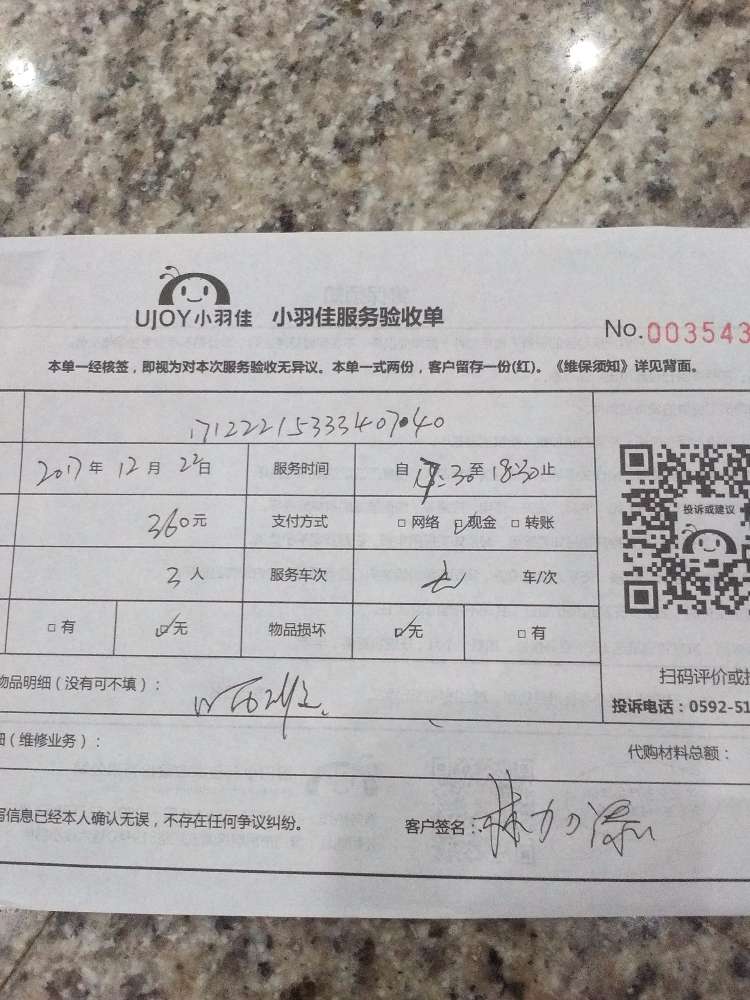 UJOY小羽佳 小羽佳服务验收单
No.003543
本单一经核签，即视为对本次服务验收无异议。本单一式两份，客户留存一份(红)。《维保须知》详见背面。
17122215333407040
2017年12月22日 服务时间 自 :30至18:30止
投诉或建议
360元 支付方式 □网络 □现金 □转账
3人 服务车次 车/次
□有 □无 物品损坏 □无 □有
物品明细(没有可不填)：
扫码评价或投
投诉电话：0592-51
(维修业务)：
代购材料总额：
写信息已经本人确认无误，不存在任何争议纠纷。
客户签名：